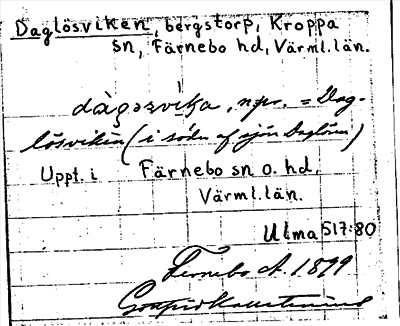 Daglösviken, bergstorp, Kroppa
sn, Färnebo hd, Värml. län.
dàgǝzvi̇̀ka, npr. = Dag-
lösviken (i södr. af sjön Daglösen)
Uppt. i Färnebo sn o. hd,
Värml. län.
Ulma 517:80
Fernebo d. 1899
Gottfrid Kallstenius